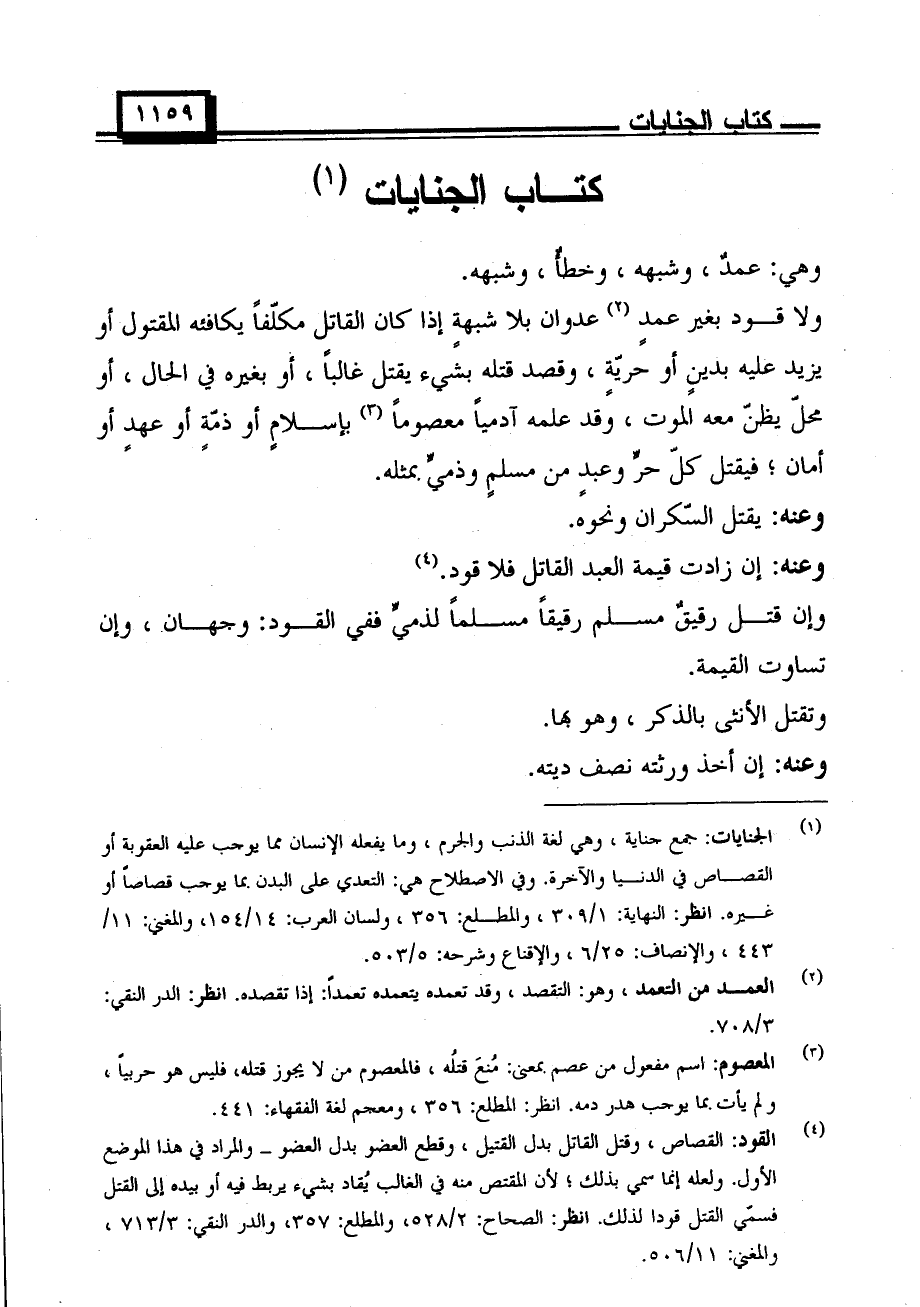 كتاب الجنايات
١١٥٩
كتـــاب الجنايات (١)
وهي: عمدٌ ، وشبهه ، وخطأٌ ، وشبهه.
ولا قـــود بغير عمدٍ (٢) عدوان بلا شبهةٍ إذا كان القاتل مكلّفاً يكافئه المقتول أو
يزيد عليه بدينٍ أو حريّةٍ ، وقصد قتله بشيء يقتل غالباً ، أو بغيره في الحال ، أو
محلّ يظنّ معه الموت ، وقد علمه آدمياً معصوماً (٣) بإســـلامٍ أو ذمّةٍ أو عهدٍ أو
أمان ؛ فيقتل كلّ حرٍّ وعبدٍ من مسلمٍ وذميٍّ بمثله.
وعنه: يقتل السّكران ونحوه.
وعنه: إن زادت قيمة العبد القاتل فلا قود.(٤)
وإن قتـــل رقيقٌ مســـلم رقيقاً مســـلماً لذميٍّ ففي القـــود: وجهـــان ، وإن
تساوت القيمة.
وتقتل الأنثى بالذكر ، وهو بها.
وعنه: إن أخذ ورثته نصف ديته.
(١) الجنايات: جمع جناية ، وهي لغة الذنب والجرم ، وما يفعله الإنسان مما يوجب عليه العقوبة أو
القصـــاص في الدنـــيا والآخرة. وفي الاصطلاح هي: التعدي على البدن بما يوجب قصاصاً أو
غـــيره. انظر: النهاية: ٣٠٩/١ ، والمطـــلع: ٣٥٦ ، ولسان العرب: ١٥٤/١٤، والمغني: ١١/
٤٤٣ ، والإنصاف: ٦/٢٥ ، والإقناع وشرحه: ٥٠٣/٥.
(٢) العمـــد من التعمد ، وهو: التقصد ، وقد تعمده يتعمده تعمداً: إذا تقصده. انظر: الدر النقي:
٧٠٨/٣.
(٣) المعصوم: اسم مفعول من عصم بمعنى: مُنعَ قتلُه ، فالمعصوم من لا يجوز قتله، فليس هو حربياً ،
ولم يأت بما يوجب هدر دمه. انظر: المطلع: ٣٥٦ ، ومعجم لغة الفقهاء: ٤٤١.
(٤) القود: القصاص ، وقتل القاتل بدل القتيل ، وقطع العضو بدل العضو – والمراد في هذا الموضع
الأول. ولعله إنما سمي بذلك ؛ لأن المقتص منه في الغالب يُقاد بشيء يربط فيه أو بيده إلى القتل
فسمّي القتل قودا لذلك. انظر: الصحاح: ٥٢٨/٢، والمطلع: ٣٥٧، والدر النقي: ٧١٣/٣ ،
والمغني: ٥٠٦/١١.